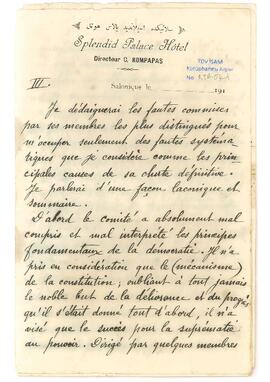 Splendid Palace Hôtel
Directeur C. KOMPAPAS
TOV ISAM
Kütüphanesi Arşivi
No
Salonique, le 191
III.
Je dédaignerai les fautes commises
par ses membres les plus distingués pour
m'occuper seulement des fautes systéma
tiques que je considère comme les prin
cipales causes de sa chute définitive.
Je parlerai d'une façon laconique et
sommaire.
D'abord le comité a absolument mal
compris et mal interprêté les principes
fondamentaux de la démocratie. Il n'a
pris en considération que le (mécanisme)
de la constitution; oubliant à tout jamais
le noble but de la délivrance et du progrès
qu'il s'était donné tout d'abord, il n'a
visé que le succès pour la suprématie
au pouvoir. Dirigé par quelques membres